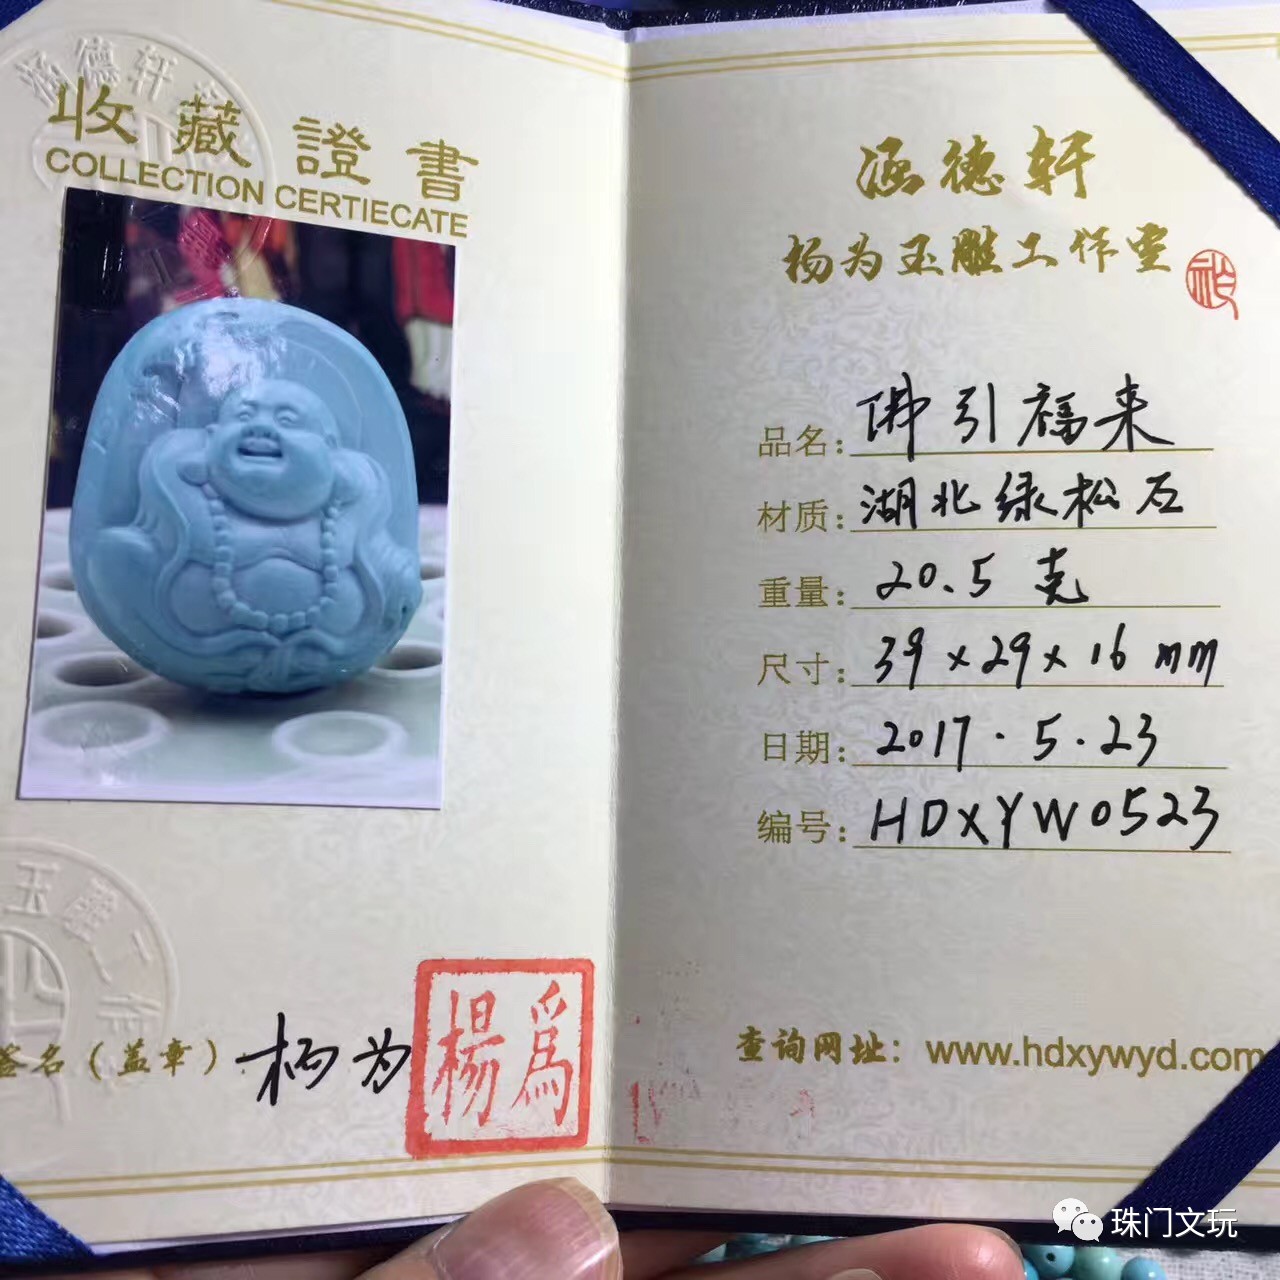 涵德轩
收藏證書
COLLECTION CERTIECATE
玉雕工作
签名（盖章）杨为
楊為
涵德轩
杨为玉雕工作室
品名：佛引福来
材质：湖北绿松石
重量：20.5 克
尺寸：39×29×16 mm
日期：2017.5.23
编号：HDXYW0523
查询网址：www.hdxywyd.com
珠门文玩